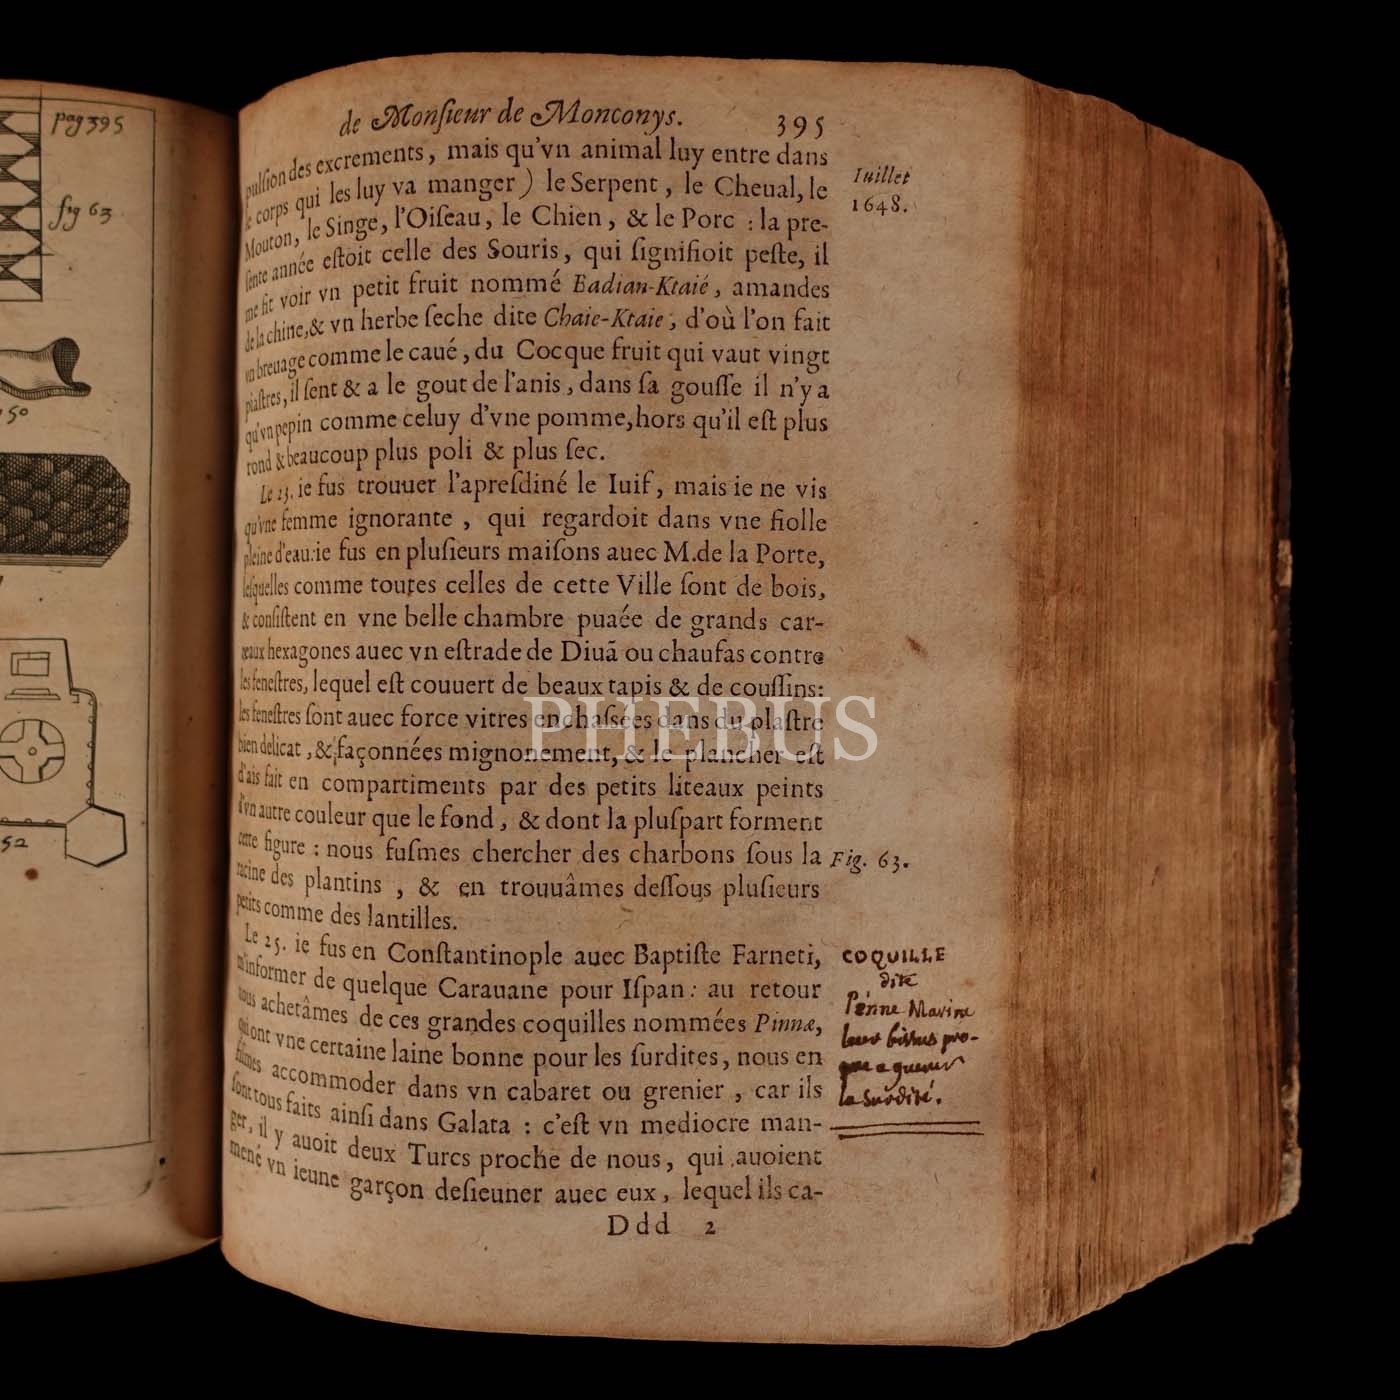 pag 395
fig 63
50
52
de Monſieur de Monconys. 395
pulſion des excrements, mais qu'vn animal luy entre dans
le corps qui les luy va manger) le Serpent, le Cheual, le
Mouton, le Singe, l'Oiſeau, le Chien, & le Porc : la pre-
ſente année eſtoit celle des Souris, qui ſignifioit peſte, il
me fit voir vn petit fruit nommé Badian-Ktaié, amandes
de la chine, & vn herbe ſeche dite Chaie-Ktaie, d'où l'on fait
vn breuage comme le caué, du Cocque fruit qui vaut vingt
piaſtres, il ſent & a le gout de l'anis, dans ſa gouſſe il n'y a
qu'vn pepin comme celuy d'vne pomme, hors qu'il eſt plus
rond & beaucoup plus poli & plus ſec.
Le 23. ie fus trouuer l'apreſdiné le Iuif, mais ie ne vis
qu'vne femme ignorante, qui regardoit dans vne fiolle
pleine d'eau: ie fus en pluſieurs maiſons auec M. de la Porte,
leſquelles comme toutes celles de cette Ville ſont de bois,
& conſiſtent en vne belle chambre puaée de grands car-
reaux hexagones auec vn eſtrade de Diuā ou chaufas contre
les feneſtres, lequel eſt couuert de beaux tapis & de couſſins:
les feneſtres ſont auec force vitres enchaſsées dans du plaſtre
bien delicat, & façonnées mignonement, & le plancher eſt
d'ais fait en compartiments par des petits liteaux peints
d'vn autre couleur que le fond, & dont la pluſpart forment
cette figure : nous fuſmes chercher des charbons ſous la
racine des plantins, & en trouuâmes deſſous pluſieurs
petits comme des lantilles.
Le 25. ie fus en Conſtantinople auec Baptiſte Farneti,
m'informer de quelque Carauane pour Iſpan : au retour
nous achetâmes de ces grandes coquilles nommées Pinnæ,
qui ont vne certaine laine bonne pour les ſurdites, nous en
fiſmes accommoder dans vn cabaret ou grenier, car ils
ſont tous faits ainſi dans Galata : c'eſt vn mediocre man-
ger, il y auoit deux Turcs proche de nous, qui auoient
mené vn ieune garçon deſieuner auec eux, lequel ils ca-
Ddd 2
Iuillet
1648.
Fig. 63.
COQUILLE
dite
Penne Marine
leur bissus pro-
pre a guerir
la Surdité.
PHEBUS